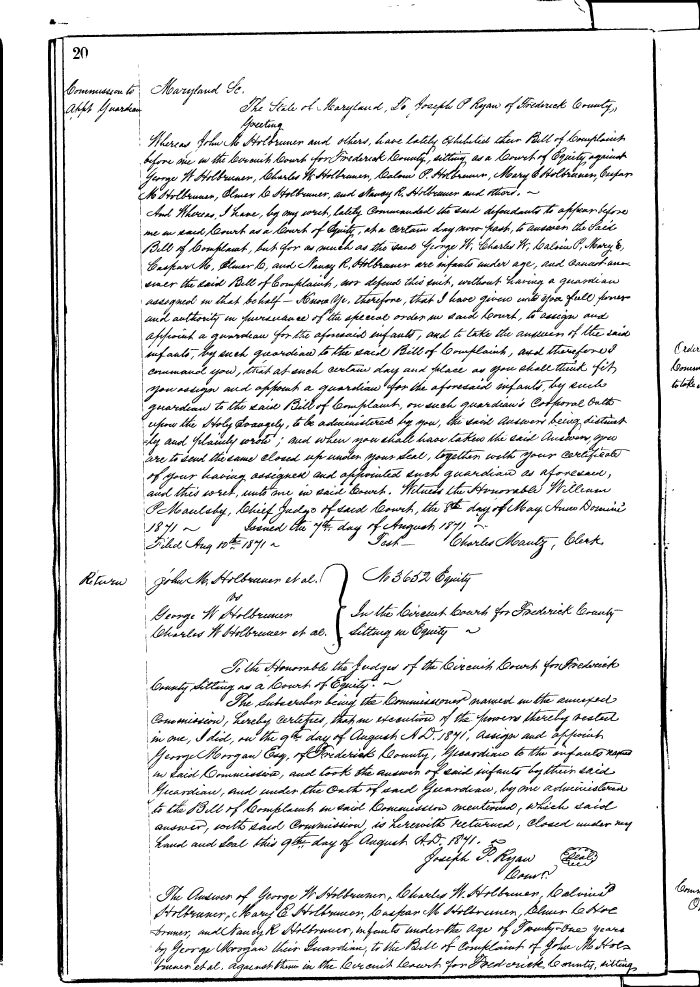 20
Commission to
App't Guardian
Maryland Sc.
The State of Maryland, To Joseph P Ryan of Frederick County,
Greeting
Whereas John M. Holbruner and others, have lately exhibited their Bill of Complaint
before me in the Circuit Court for Frederick County, sitting as a Court of Equity, against
George W. Holbruner, Charles W. Holbruner, Calvin P. Holbruner, Mary E Holbruner, Caspar
M. Holbruner, Elmer C Holbruner, and Nancy R. Holbruner and others. ~
And Whereas, I have, by my writ, lately commanded the said defendants to appear before
me in said Court as a Court of Equity, at a certain day now past, to answer the said
Bill of Complaint, but for as much as the said George W; Charles W; Calvin P, Mary E,
Caspar M, Elmer C, and Nancy R, Holbruner are infants under age, and cannot an-
swer the said Bill of Complaint, nor defend this suit, without having a guardian
assigned in that behalf — Know Ye, therefore, that I have given unto you full power
and authority in pursuance of the special order in said Court, to assign and
appoint a guardian for the aforesaid infants, and to take the answer of the said
infants, by such guardian to the said Bill of Complaint, and therefore I
command you, that at such certain day and place as you shall think fit,
you assign and appoint a guardian for the aforesaid infants, by such
guardian to the said Bill of Complaint, on such guardian's Corporal Oath
upon the Holy Evangely, to be administered by you, the said Answer being distinct
ly and plainly wrote; and when you shall have taken the said Answer, you
are to send the same closed up under your seal, together with your certificate
of your having assigned and appointed such guardian as aforesaid,
and this writ, unto me in said Court. Witness the Honorable William
P. Maulsby, Chief Judge of said Court, the 8th day of May Anno Domini
1871 ~ Issued the 7th day of August 1871 ~
Filed Aug 10th 1871 ~ Test — Charles Mantz, Clerk
Return
John M. Holbruner et al.
vs
George W Holbruner
Charles W Holbruner et al.
No 3652 Equity
In the Circuit Court for Frederick County
Sitting in Equity ~
To the Honorable the Judges of the Circuit Court for Frederick
County Sitting as a Court of Equity. ~
The Subscriber being the Commissioner named in the annexed
Commission, hereby certifies, that in execution of the powers thereby vested
in me, I did, on the 9th day of August A.D. 1871, assign and appoint
George Morgan Esq, of Frederick County, Guardian to the infants named
in said Commission, and took the answer of said infants by their said
Guardian, and under the Oath of said Guardian, by me administered
to the Bill of Complaint in said Commission mentioned, which said
answer, with said Commission, is herewith returned, closed under my
hand and seal this 9th day of August A.D. 1871.
Joseph P. Ryan (Seal)
Comr.
The Answer of George W Holbruner, Charles W. Holbruner, Calvin P
Holbruner, Mary E Holbruner, Caspar M Holbruner, Elmer C Hol
bruner, and Nancy R Holbruner, infants under the age of Twenty-one years
by George Morgan their Guardian, to the Bill of Complaint of John M. Hol-
bruner et al. against them in the Circuit Court for Frederick County, sitting
Order
to take